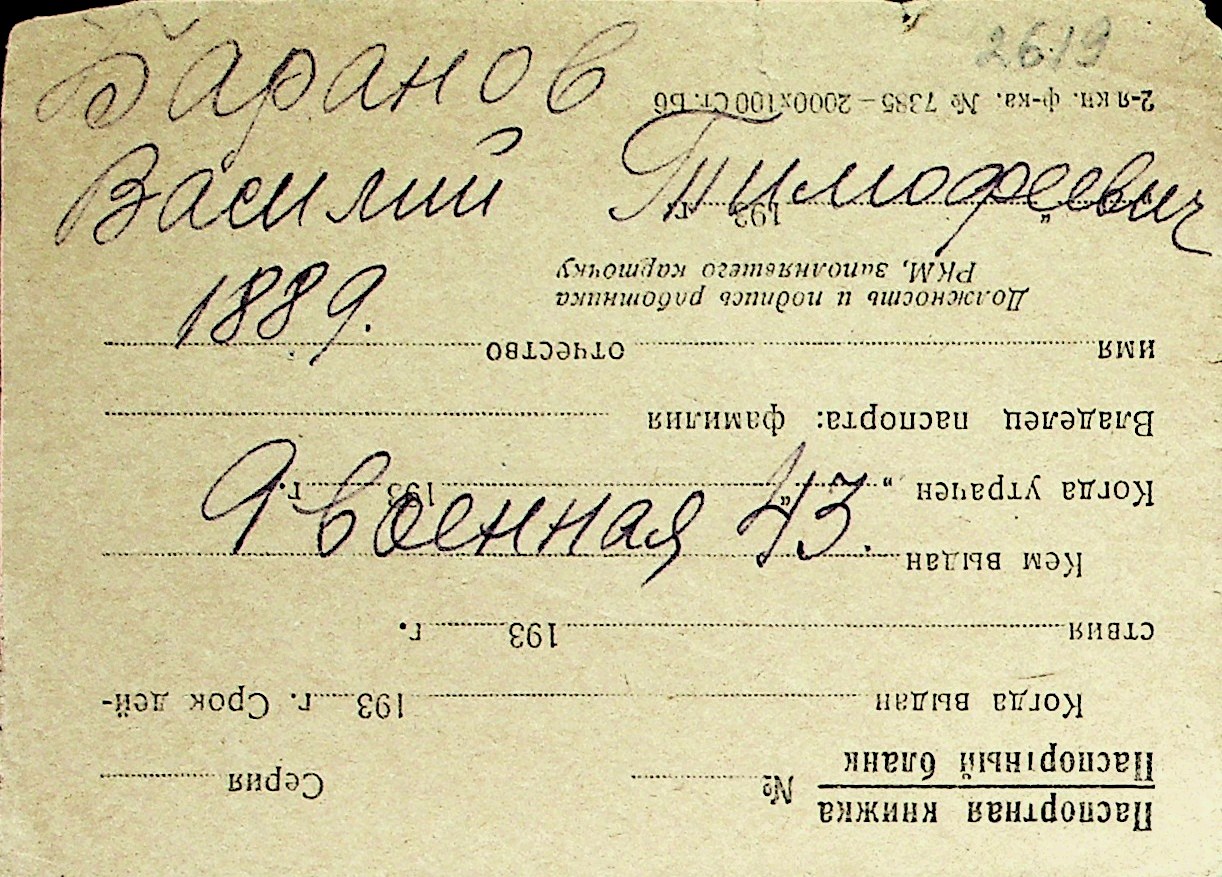 2619
Баранов
Василий Тимофеевич
1889.
9 Военная 43.
Паспортная книжка
Паспортный бланк
№ Серия
Когда выдан 193 г. Срок дей-
ствия 193 г.
Кем выдан
Когда утрачен „ “ 193 г.
Владелец паспорта: фамилия
имя отчество
Должность и подпись работника
РКМ, заполнявшего карточку
„ “ 193 г.
2-я кн. ф-ка. № 7385 — 2000х100 Ст. Б6